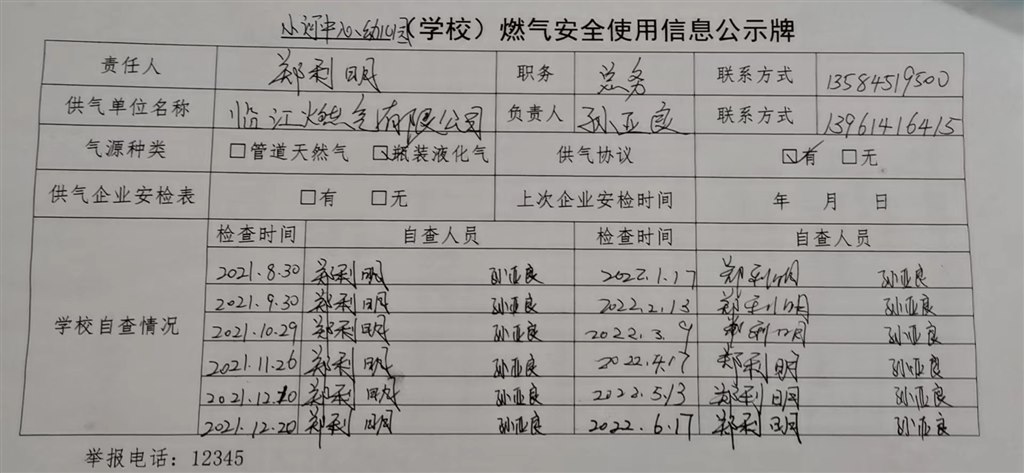 小河中心幼儿园(学校)燃气安全使用信息公示牌
责任人 郑利明 职务 总务 联系方式 13584519500
供气单位名称 临江燃气有限公司 负责人 孙亚良 联系方式 13961416415
气源种类 □管道天然气 ☑瓶装液化气 供气协议 ☑有 □无
供气企业安检表 □有 □无 上次企业安检时间 年 月 日
学校自查情况
检查时间 自查人员 检查时间 自查人员
2021.8.30 郑利明 孙亚良 2022.1.17 郑利明 孙亚良
2021.9.30 郑利明 孙亚良 2022.2.13 郑利明 孙亚良
2021.10.29 郑利明 孙亚良 2022.3.9 郑利明 孙亚良
2021.11.26 郑利明 孙亚良 2022.4.17 郑利明 孙亚良
2021.12.10 郑利明 孙亚良 2022.5.13 郑利明 孙亚良
2021.12.20 郑利明 孙亚良 2022.6.17 郑利明 孙亚良
举报电话：12345